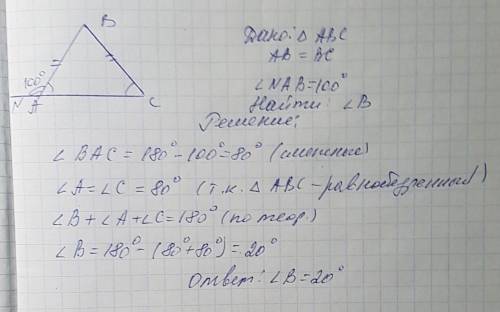 B
100°
N A C
Дано: △ ABC
AB = BC
∠NAB=100°
Найти: ∠B
Решение:
∠BAC = 180°-100°=80° (смежные)
∠A=∠C = 80° (т.к. △ ABC - равнобедренный)
∠B+∠A+∠C=180° (по теор.)
∠B=180°-(80°+80°)=20°
Ответ: ∠B=20°